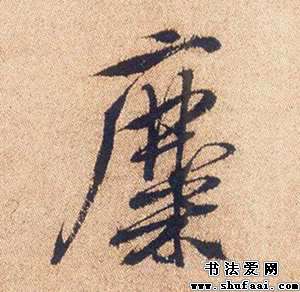 糜
书法爱网
www.shufaai.com